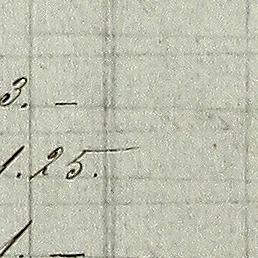 3. –
1.25.
1. –